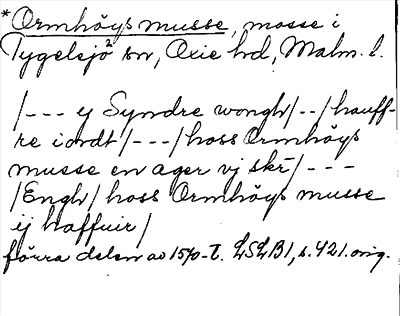 *Ormhöys musse, mosse i
Tygelsjö² sn, Oxie hd, Malm. l.
/--- ej Syndre wongh/--/hauff-
re iordt/---/hoss Ormhöys
musse en ager vj skr̄/---
/Engh/ hoss Ormhöys musse
ij haffuir/
förra delen av 1570-t. LSLB1, s. 421. orig.